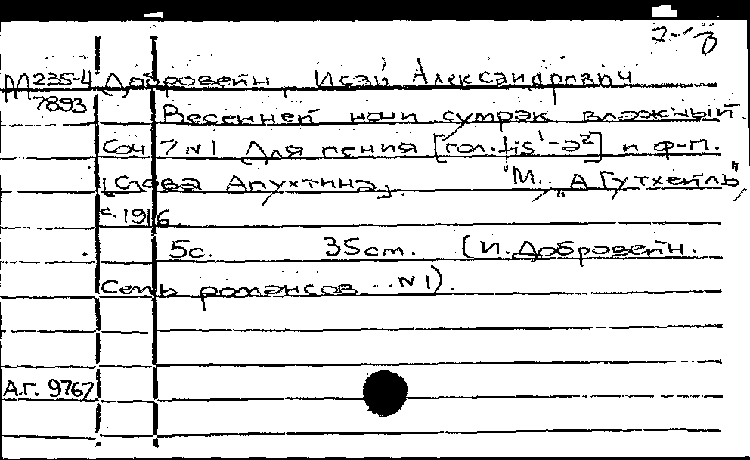 М 235-4 Добровейн, Исай Александрович
7893 Весенней ночи сумрак влажный.
Соч 7 №1 Для пения [гол. fis¹-a²] и ф-п.
[Слова Апухтина]. М., "А Гутхейль",
с. 1916.
5с. 35cm. (И. Добровейн.
Семь романсов .. №1).
А.Г. 9767